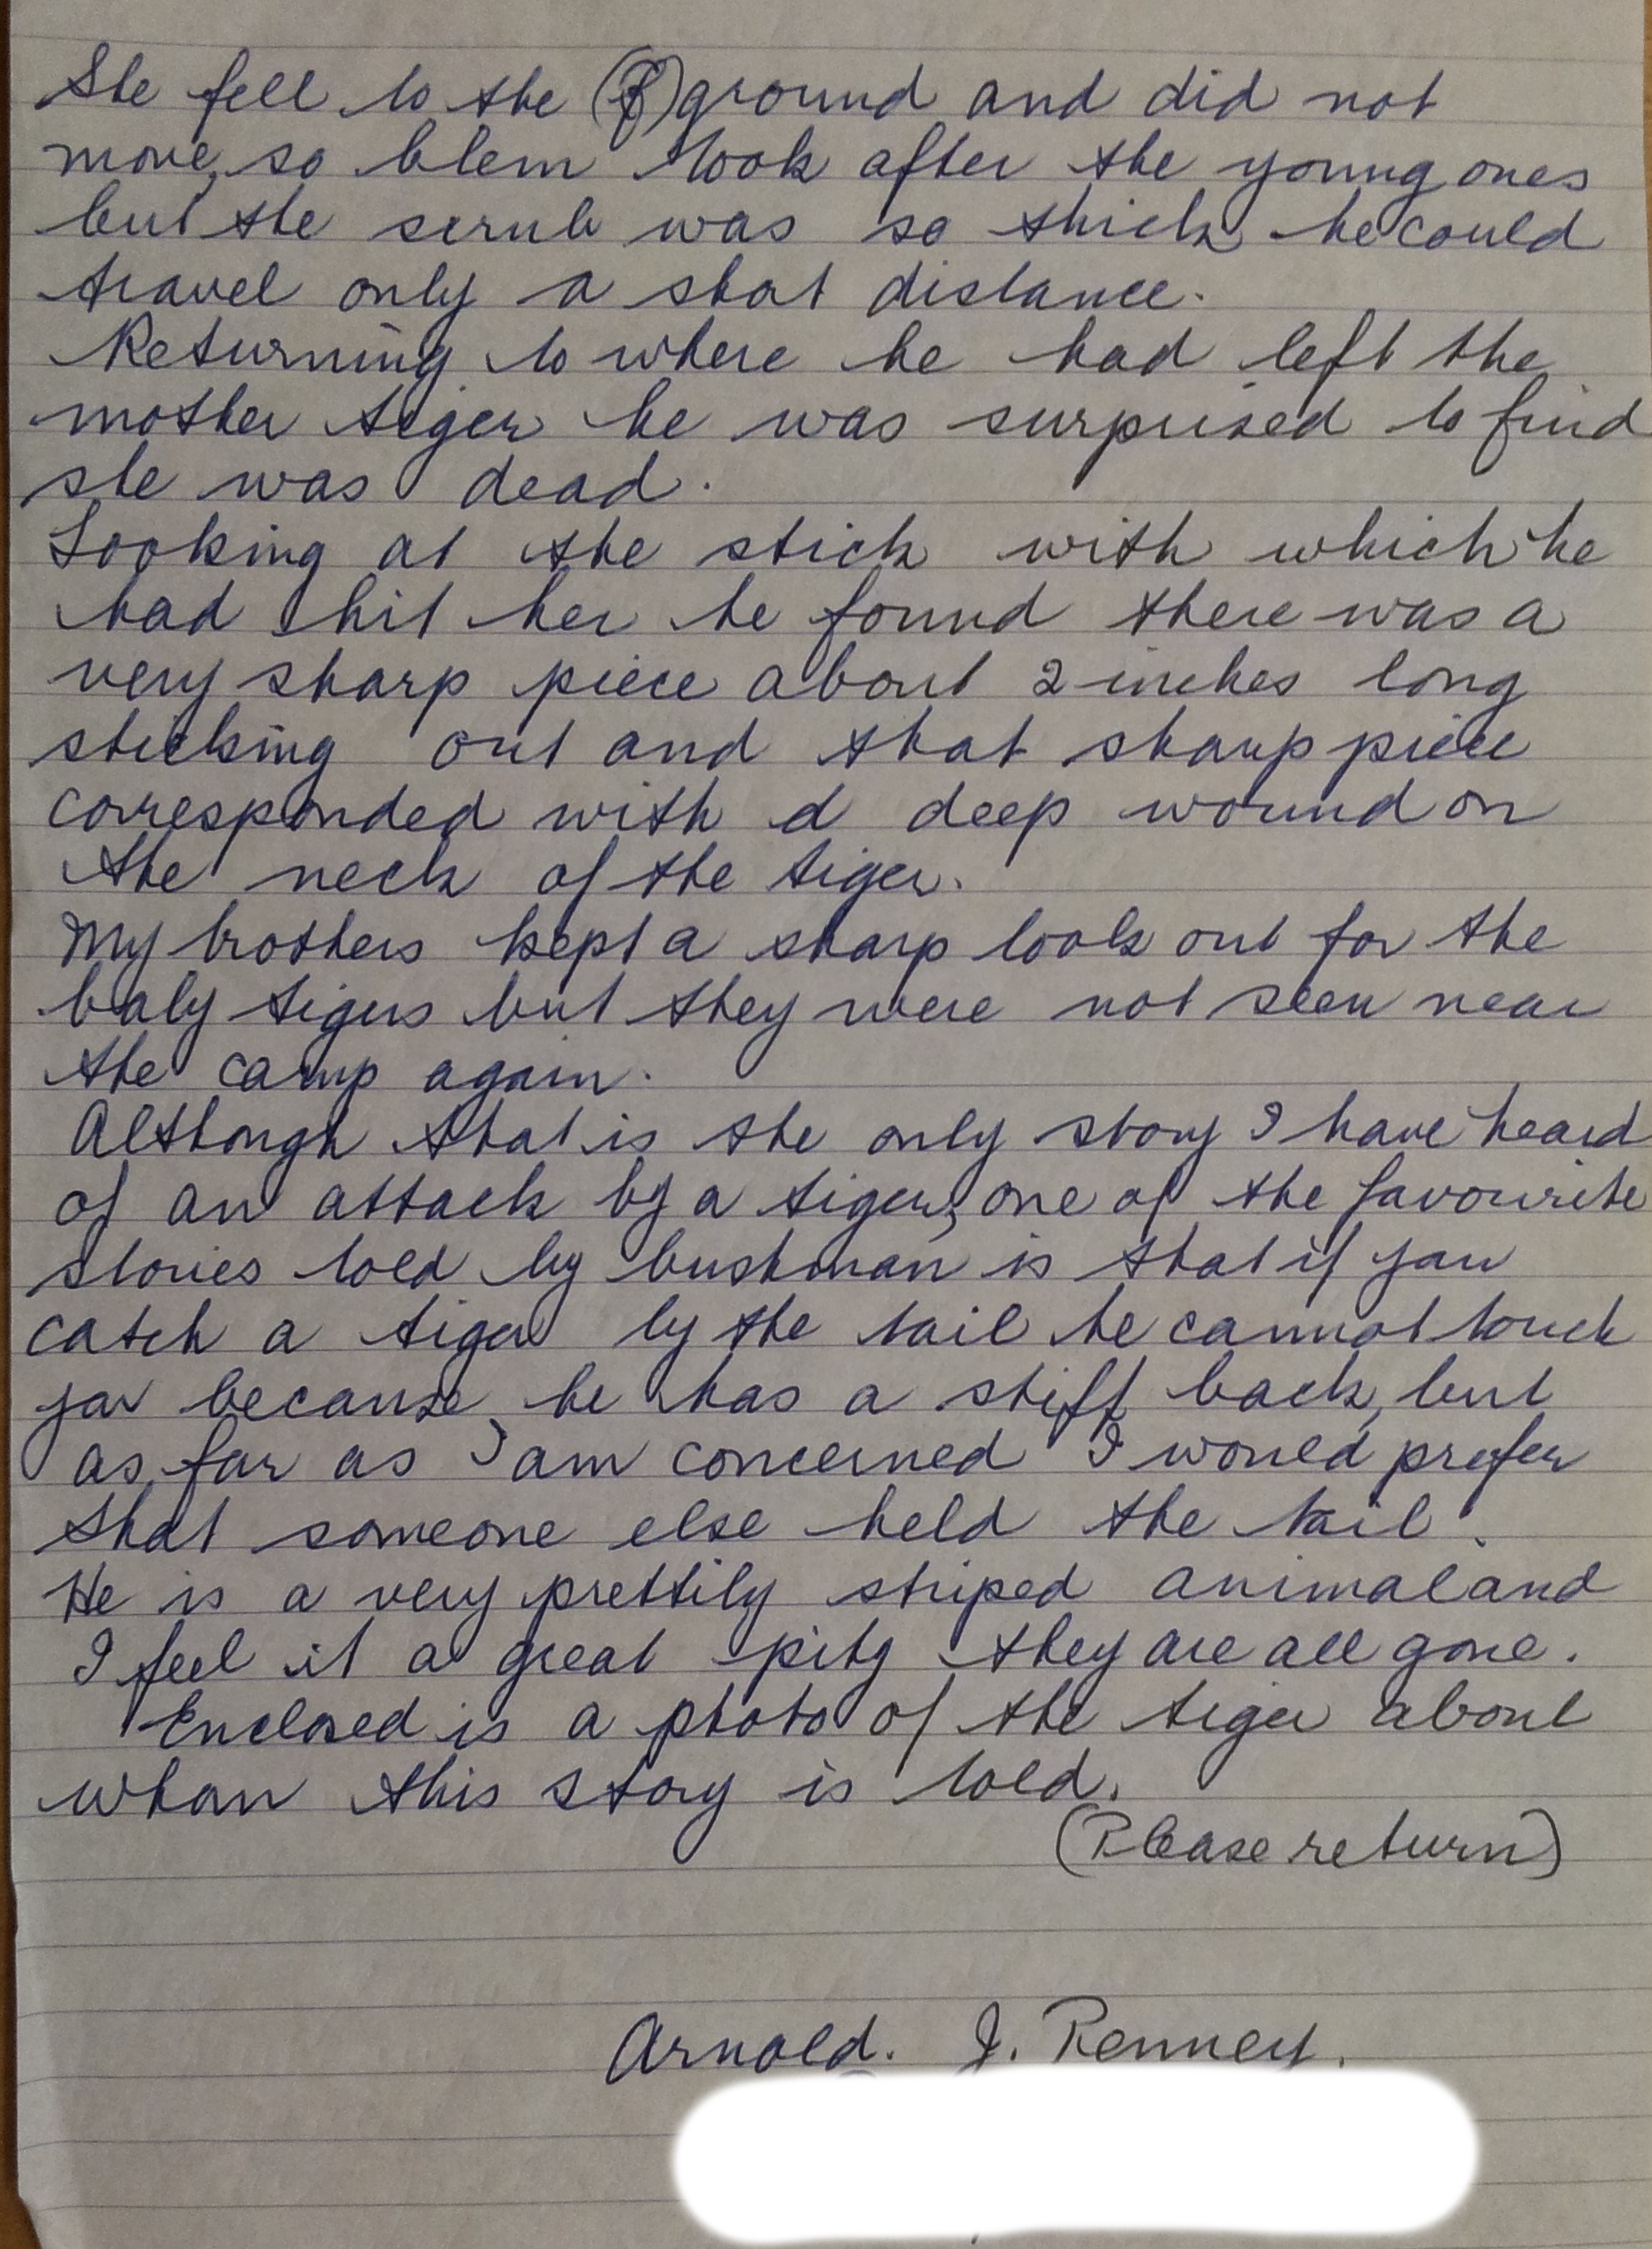 She fell to the (f) ground and did not
move, so Clem took after the young ones
but the scrub was so thick he could
travel only a short distance.
Returning to where he had left the
mother tiger he was surprised to find
she was dead.
Looking at the stick with which he
had hit her he found there was a
very sharp piece about 2 inches long
sticking out and that sharp piece
corresponded with a deep wound on
the neck of the tiger.
My brothers kept a sharp look out for the
baby tigers but they were not seen near
the camp again.
Although that is the only story I have heard
of an attack by a tiger, one of the favourite
stories told by bushman is that if you
catch a tiger by the tail he cannot touch
you because, he has a stiff back, but
as far as I am concerned I would prefer
that someone else held the tail.
He is a very prettily striped animal and
I feel it a great pity they are all gone.
Enclosed is a photo of the tiger about
whom this story is told.
(Please return)
Arnold. J.